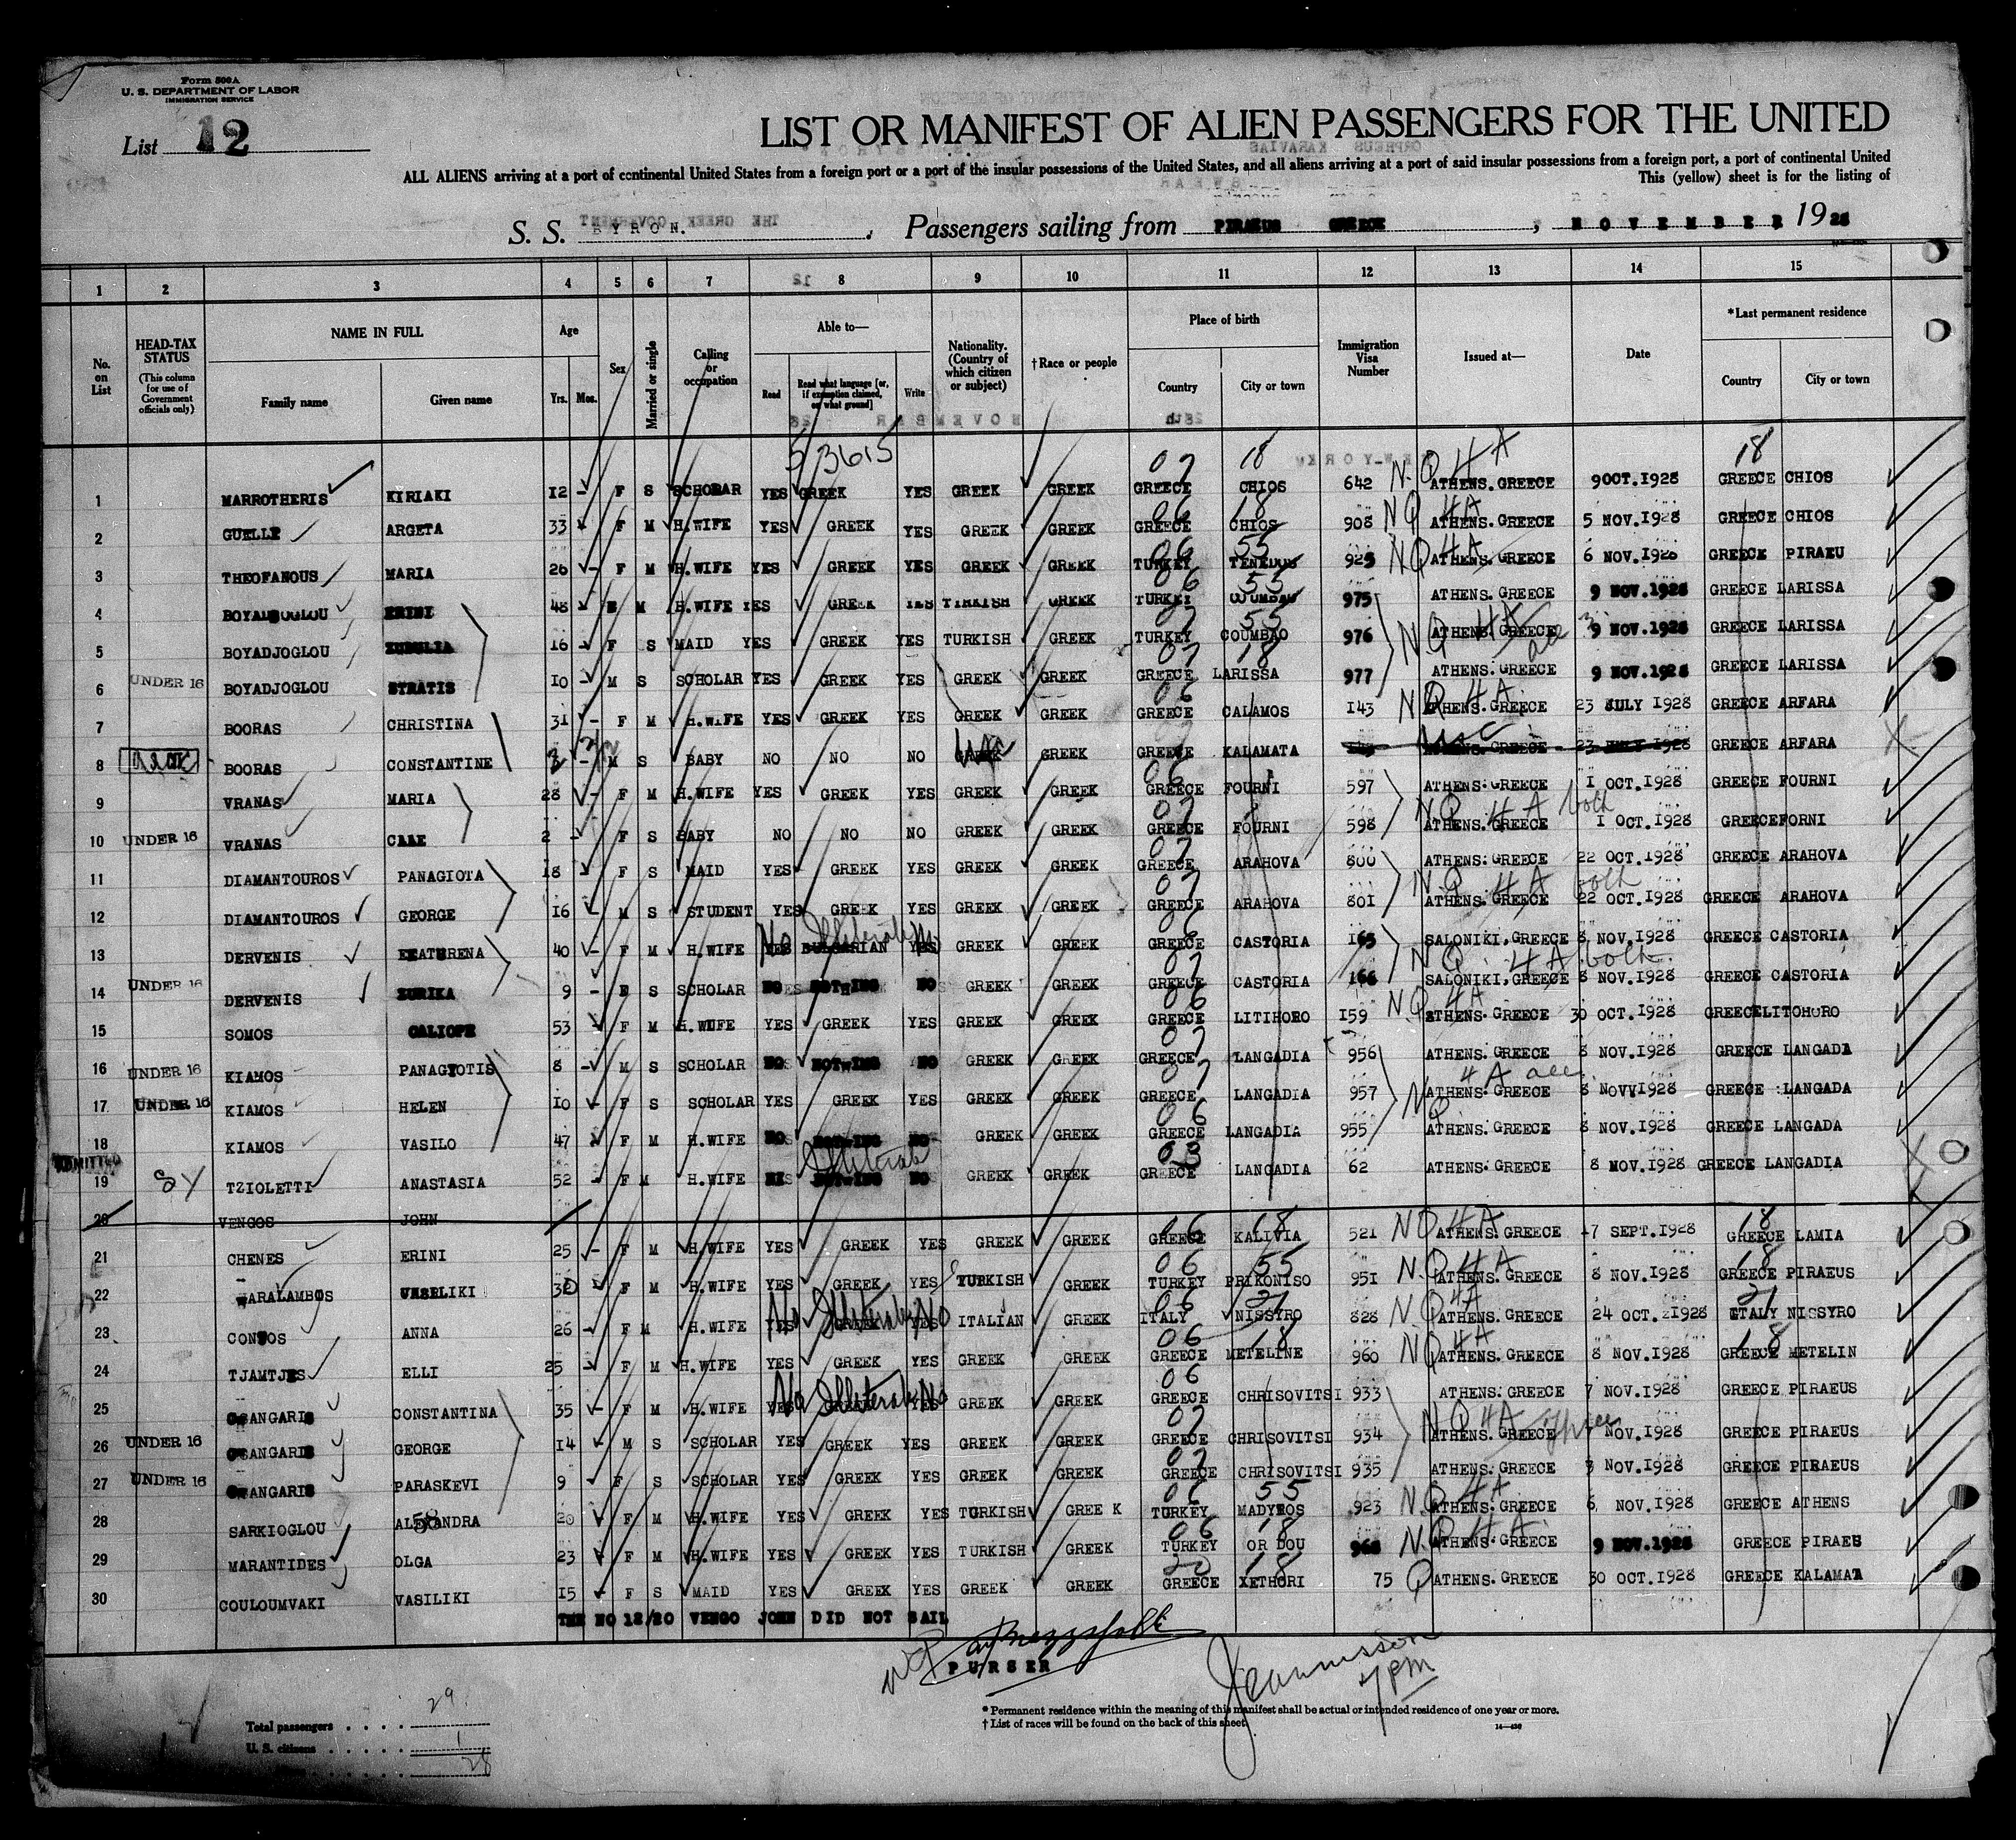 Form 500A
U. S. DEPARTMENT OF LABOR
IMMIGRATION SERVICE
List 12
LIST OR MANIFEST OF ALIEN PASSENGERS FOR THE UNITED
ALL ALIENS arriving at a port of continental United States from a foreign port or a port of the insular possessions of the United States, and all aliens arriving at a port of said insular possessions from a foreign port, a port of continental United
This (yellow) sheet is for the listing of
S. S. BYRON. , Passengers sailing from PIRAEUS GREECE , NOVEMBER 1928
1 2 3 4 5 6 7 8 9 10 11 12 13 14 15
No. on List
HEAD-TAX STATUS (This column for use of Government officials only)
NAME IN FULL
Family name
Given name
Age
Yrs. Mos.
Sex
Married or single
Calling or occupation
Able to—
Read
Read what language [or, if exemption claimed, on what ground]
Write
Nationality. (Country of which citizen or subject)
†Race or people
Place of birth
Country
City or town
Immigration Visa Number
Issued at—
Date
*Last permanent residence
Country
City or town
53615 07 18 NQ 4A 18
1 MARROTHERIS KIRIAKI 12 - F S SCHOLAR YES GREEK YES GREEK GREEK GREECE CHIOS 642 ATHENS. GREECE 9 OCT.1928 GREECE CHIOS
06 18 NQ 4A
2 GUELLE ARGETA 33 F M H.WIFE YES GREEK YES GREEK GREEK GREECE CHIOS 908 ATHENS. GREECE 5 NOV.1928 GREECE CHIOS
06 55 NQ 4A
3 THEOFANOUS MARIA 26 - F M H.WIFE YES GREEK YES GREEK GREEK TURKEY TENEDOS 925 ATHENS. GREECE 6 NOV.1928 GREECE PIRAEU
06 55
4 BOYADJOGLOU ERINI 48 M H.WIFE YES GREEK YES TYRKISH GREEK TURKEY 975 ATHENS. GREECE 9 NOV.1928 GREECE LARISSA
07 55 NQ 4A all
5 BOYADJOGLOU 16 - F S MAID YES GREEK YES TURKISH GREEK TURKEY COUMBAO 976 ATHENS. GREECE 9 NOV.1928 GREECE LARISSA
07 18
6 UNDER 16 BOYADJOGLOU STRATIS 10 - M S SCHOLAR YES GREEK YES GREEK GREEK GREECE LARISSA 977 ATHENS: GREECE 9 NOV.1928 GREECE LARISSA
06 NQ 4A
7 BOORAS CHRISTINA 31 - F M H.WIFE YES GREEK YES GREEK GREEK GREECE CALAMOS 143 ATHENS. GREECE 23 JULY 1928 GREECE ARFARA
8 BOORAS CONSTANTINE 3 - M S BABY NO NO NO GREEK GREEK GREECE KALAMATA ATHENS. GREECE 23 JULY 1928 GREECE ARFARA
06
9 VRANAS MARIA 28 - F M H.WIFE YES GREEK YES GREEK GREEK GREECE FOURNI 597 ATHENS: GREECE 1 OCT.1928 GREECE FOURNI
07 NQ 4A both
10 UNDER 16 VRANAS 2 - F S BABY NO NO NO GREEK GREEK GREECE FOURNI 598 ATHENS: GREECE 1 OCT.1928 GREECE FORNI
07
11 DIAMANTOUROS PANAGIOTA 18 F S MAID YES GREEK YES GREEK GREEK GREECE ARAHOVA 800 ATHENS: GREECE 22 OCT.1928 GREECE ARAHOVA
07 NQ 4A both
12 DIAMANTOUROS GEORGE 16 - M S STUDENT YES GREEK YES GREEK GREEK GREECE ARAHOVA 801 ATHENS: GREECE 22 OCT.1928 GREECE ARAHOVA
No Illiterate 06
13 DERVENIS EKATERENA 40 - F M H.WIFE YES BULGARIAN YES GREEK GREEK GREECE CASTORIA 165 SALONIKI, GREECE 8 NOV.1928 GREECE CASTORIA
07 NQ 4A both
14 UNDER 16 DERVENIS ZURIKA 9 - S SCHOLAR NO NOTHING NO GREEK GREEK GREECE CASTORIA 166 SALONIKI, GREECE 8 NOV.1928 GREECE CASTORIA
06 NQ 4A
15 SOMOS CALIOPE 53 F M H.WIFE YES GREEK YES GREEK GREEK GREECE LITIHORO 159 ATHENS: GREECE 30 OCT.1928 GREECE LITOHORO
07
16 UNDER 16 KIAMOS PANAGYOTIS 8 - M S SCHOLAR NO NOTHING NO GREEK GREEK GREECE LANGADIA 956 ATHENS: GREECE 8 NOV.1928 GREECE LANGADA
07 NQ 4A all
17 UNDER 16 KIAMOS HELEN 10 - F S SCHOLAR YES GREEK YES GREEK GREEK GREECE LANGADIA 957 ATHENS: GREECE 8 NOVV1928 GREECE LANGADA
06
18 KIAMOS VASILO 47 F M H.WIFE NO NOTHING NO GREEK GREEK GREECE LANGADIA 955 ATHENS: GREECE 8 NOV.1928 GREECE LANGADA
ADMITTED Illiterate 03
19 SY TZIOLETTI ANASTASIA 52 - F M H.WIFE NOTHING NO GREEK GREEK GREECE LANGADIA 62 ATHENS: GREECE 8 MOV.1928 GREECE LANGADIA
20 VENGOS JOHN
06 18 NQ 4A 18
21 CHENES ERINI 25 - F M H.WIFE YES GREEK YES GREEK GREEK GREECE KALIVIA 521 ATHENS: GREECE 17 SEPT.1928 GREECE LAMIA
06 55 NQ 4A 18
22 VASELIKI 30 F M H.WIFE YES GREEK YES TURKISH GREEK TURKEY PRIKONISO 951 ATHENS. GREECE 8 NOV.1928 GREECE PIRAEUS
No Illiterate No 06 21 NQ 4A 21
23 CONTOS ANNA 26 - F M H.WIFE YES GREEK YES ITALIAN GREEK ITALY NISSYRO 828 ATHENS. GREECE 24 OCT.1928 ITALY NISSYRO
06 18 NQ 4A 18
24 TJAMTJES ELLI 25 - F M H.WIFE YES GREEK YES GREEK GREEK GREECE METELINE 960 ATHENS: GREECE 8 NOV.1928 GREECE METELIN
No Illiterate No 06
25 CONSTANTINA 35 - F M H.WIFE YES GREEK YES GREEK GREEK GREECE CHRISOVITSI 933 ATHENS: GREECE 7 NOV.1928 GREECE PIRAEUS
07 NQ 4A
26 UNDER 16 GEORGE 14 - M S SCHOLAR YES GREEK YES GREEK GREEK GREECE CHRISOVITSI 934 ATHENS: GREECE 7 NOV.1928 GREECE PIRAEUS
07
27 UNDER 16 PARASKEVI 9 F S SCHOLAR YES GREEK YES GREEK GREEK GREECE CHRISOVITSI 935 ATHENS: GREECE 3 NOV.1928 GREECE PIRAEUS
06 55 NQ 4A
28 SARKIOGLOU ALEXANDRA 58 20 F M H.WIFE YES GREEK YES TURKISH GREE K TURKEY MADYTOS 923 ATHENS: GREECE 6 NOV.1928 GREECE ATHENS
06 18 NQ 4A
29 MARANTIDES OLGA 23 F M H.WIFE YES GREEK YES TURKISH GREEK TURKEY OR DOU ATHENS: GREECE 9 NOV.1928 GREECE PIRAES
20 18 Q
30 COULOUMVAKI VASILIKI 15 - F S MAID YES GREEK YES GREEK GREEK GREECE XETHORI 75 ATHENS. GREECE 30 OCT.1928 GREECE KALAMATA
THE NO 12/20 VENGO JOHN DID NOT SAIL
PURSER
7 PM
*Permanent residence within the meaning of this manifest shall be actual or intended residence of one year or more.
†List of races will be found on the back of this sheet.
Total passengers . . . . 29
U. S. citizens . . . . . 1
28